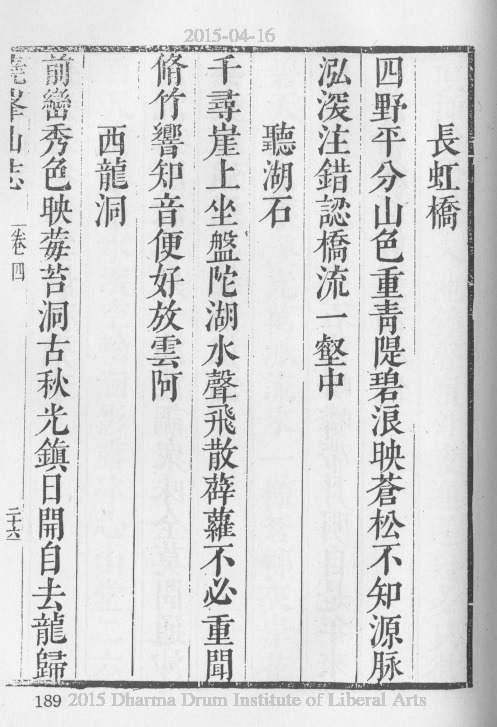 2015-04-16
長虹橋
四野平分山色重靑隄碧浪映蒼松不知源脉
泓深注錯認橋流一壑中
聽湖石
千尋崖上坐盤陀湖水聲飛散薜蘿不必重聞
脩竹響知音便好放雲阿
西龍洞
前巒秀色映莓苔洞古秋光鎭日開自去龍歸
堯峯山志 卷四 二十六
189 2015 Dharma Drum Institute of Liberal Arts